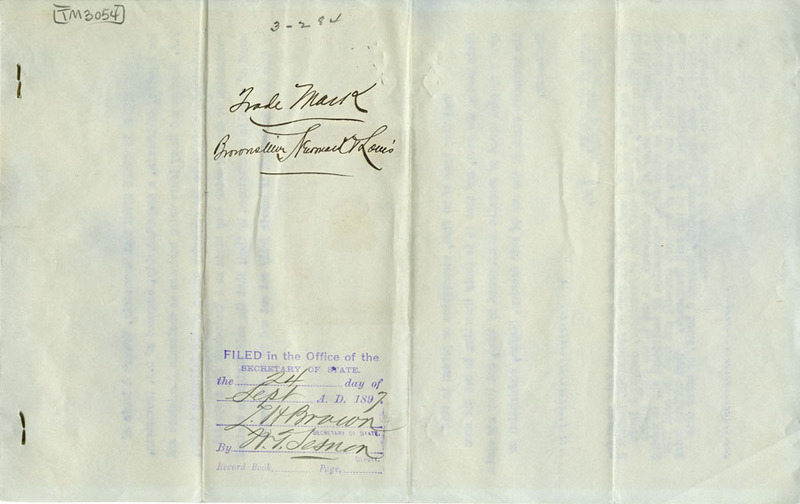 TM3054
3-284
Trade Mark
Brownstein Newmark & Louis
FILED in the Office of the
SECRETARY OF STATE.
the 24 day of
Sept A. D. 1897
L H Brown
SECRETARY OF STATE.
By W. T. Sesnon
DEPUTY.
Record Book, Page,